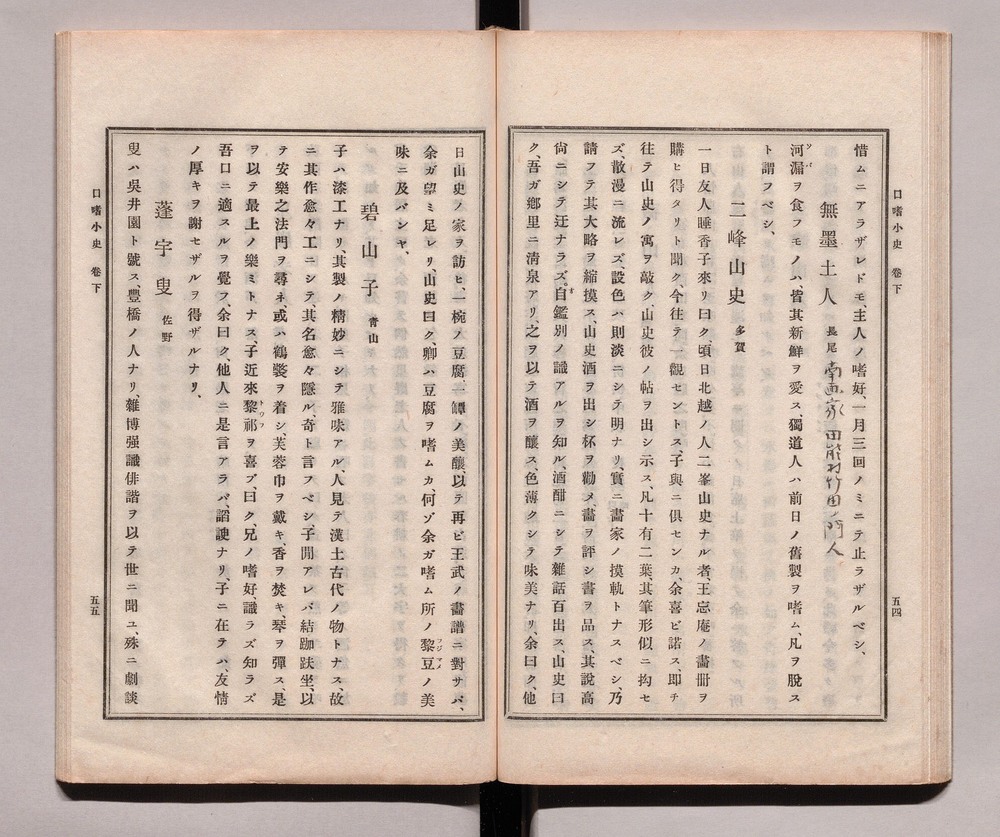 口嗜小史 卷下
五四
惜ムニアラザレドモ、主人ノ嗜好、一月三回ノミニテ止ラザルベシ、
無墨土人 長尾 南画家 田能村竹田ノ門人
河漏ヲ食フモノハ、皆其新鮮ヲ愛ス、獨道人ハ前日ノ舊製ヲ嗜ム、凡ヲ脱ス
ソバ
ト謂フベシ、
二峰山史 多賀
一日友人睡香子來リ曰ク、頃日北越ノ人二峯山史ナル者、王忘庵ノ畵冊ヲ
購ヒ得タリト聞ク、今往テ一觀セントス、子與ニ俱センカ、余喜ビ諾ス、即チ
往テ山史ノ寓ヲ敲ク、山史彼ノ帖ヲ出シ示ス、凡十有二葉、其筆形似ニ拘セ
ズ、散漫ニ流レズ、設色ハ則淡ニシテ明ナリ、實ニ畵家ノ摸軌トナスベシ、乃
請フテ其大略ヲ縮摸ス、山史酒ヲ出シ杯ヲ勸メ、畵ヲ評シ書ヲ品ス、其説高
尙ニシテ迂ナラズ、自鑑別ノ識アルヲ知ル、酒酣ニシテ雜話百出ス、山史曰
ク、吾ガ鄕里ニ淸泉アリ、之ヲ以テ酒ヲ釀ス、色薄クシテ味美ナリ、余曰ク、他
日山史ノ家ヲ訪ヒ、一椀ノ豆腐、一罇ノ美釀、以テ再ビ王武ノ畵譜ニ對サバ、
余ガ望ミ足レリ、山史曰ク、卿ハ豆腐ヲ嗜ムカ、何ゾ余ガ嗜ム所ノ黎豆ノ美
フジマメ
味ニ及バンヤ、
碧山子 靑山
子ハ漆工ナリ、其製ノ精妙ニシテ雅味アル、人見テ漢土古代ノ物トナス、故
ニ其作愈々工ニシテ、其名愈々隱ル、奇ト言フベシ、子閒アレバ結跏趺坐、以
テ安樂之法門ヲ尋ネ、或ハ鶴氅ヲ着シ、芙蓉巾ヲ戴キ、香ヲ焚キ、琴ヲ彈ス、是
ヲ以テ最上ノ樂ミトナス、子近來黎祁ヲ喜ブ、曰ク、兄ノ嗜好、識ラズ知ラズ
トウフ
吾口ニ適スルヲ覺フ、余曰ク、他人ニ是言アラバ、謟諛ナリ、子ニ在テハ、友情
ノ厚キヲ謝セザルヲ得ザルナリ、
蓬宇叟 佐野
叟ハ吳井園ト號ス、豐橋ノ人ナリ、雜博强識俳諧ヲ以テ世ニ聞ユ、殊ニ劇談
口嗜小史 卷下
五五